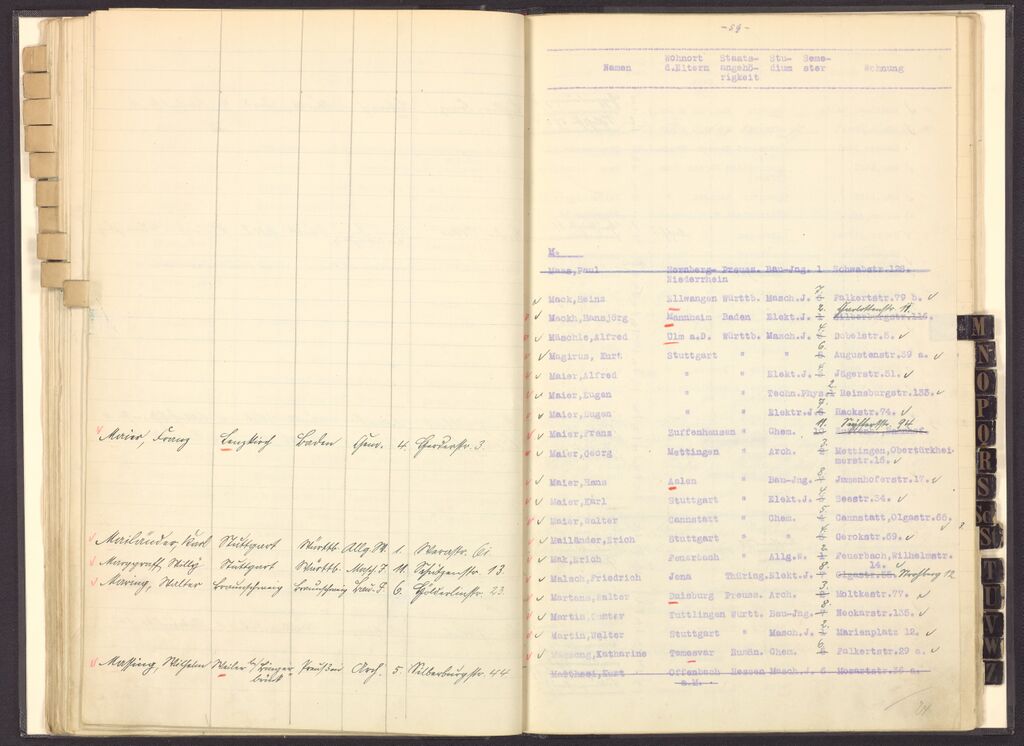 Maier, Franz Lenzkirch Baden Chem. 4. Herderstr. 3.
Mailänder, Karl Stuttgart Württb. Allg. W. 1. Werastr.
Marggraff, Willy Stuttgart Württb. Masch. J. 11. Schützenstr. 13
Maring, Walter Braunschweig Braunschweig Bau-J. 6. Hölderlinstr. 23
Massing, Wilhelm Weiler b/ Binger- Preußen Arch. 5. Silberburgstr. 44
brück
-59-
Wohnort Staats- Stu- Seme-
Namen d.Eltern angehö- dium ster Wohnung
rigkeit
M.
Maas,Paul Hornberg- Preuss. Bau-Jng. 1 Schwabstr.128.
Niederrhein
Mack,Heinz Ellwangen Württb. Masch.J. 7 Falkertstr.79 b.
Charlottenstr. 11.
Mackh,Hansjörg Mannheim Baden Elekt.J. 2. Silberburgstr.116.
Mäschle,Alfred Ulm a.D. Württb. Masch.J. 4. Dobelstr.5.
Magirus, Kurt Stuttgart " " 6. Augustenstr.39 a.
Maier,Alfred " " Elekt.J. Jägerstr.51.
Maier,Eugen " " Techn.Phys. 2 Reinsburgstr.133.
Maier,Eugen " " Elektr.J. Hackstr.74.
Maier,Franz Zuffenhausen " Chem. 11. 94
Maier,Georg Mettingen " Arch. 3. Mettingen,Obertürkhei-
merstr.15.
Maier,Hans Aalen " Bau-Jng. Jmmenhoferstr.17.
Maier,Karl Stuttgart " Elekt.J. 4 Seestr.34.
Maier,Walter Cannstatt " Chem. 5. Cannstatt,Olgastr.65.
Mailänder,Erich Stuttgart " " Gerokstr.59.
Mak,Erich Feuerbach " Allg.W. Feuerbach,Wilhelmstr.
14.
Malsch,Friedrich Jena Thüring. Elekt.J. 8. Olgastr.55. 12
Martens,Walter Duisburg Preuss. Arch. 3 Moltkestr.77.
Martin,Gustav Tuttlingen Württ. Bau-Jng. 8. Neckarstr.135.
Martin,Walter Stuttgart " Masch.J. 2. Marienplatz 12.
Katharine Temesvar Rumän. Chem. 6 Falkertstr.29 a.
Matthaei,Kurt Offenbach Hessen Masch.J. 6 Mozartstr.36 a.
a.M.
M
N
O
P
Q
R
S
Sch
St
T
U
V
W
Z